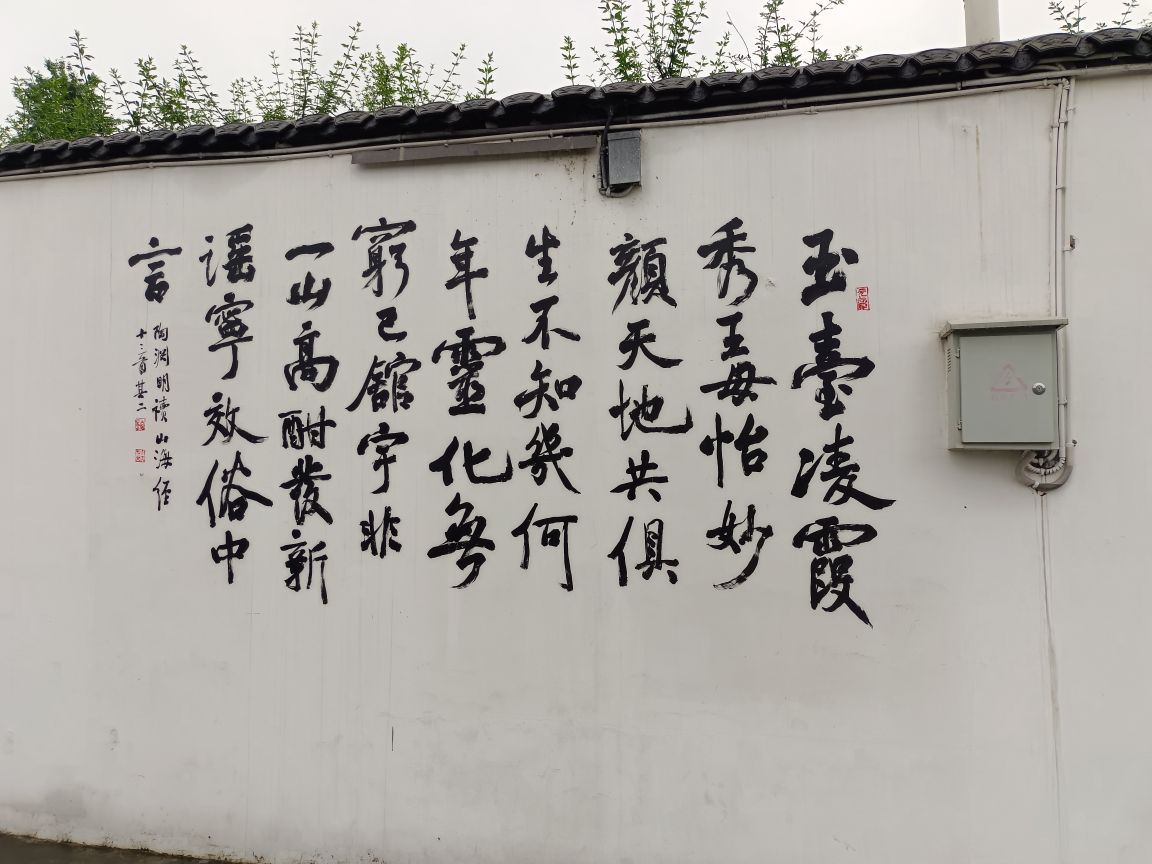 玉臺凌霞
秀王母怡妙
顏天地共俱
生不知幾何
年靈化無
窮已館宇非
一山高酣發新
謠寧效俗中
言
陶淵明讀山海經
十三首其二